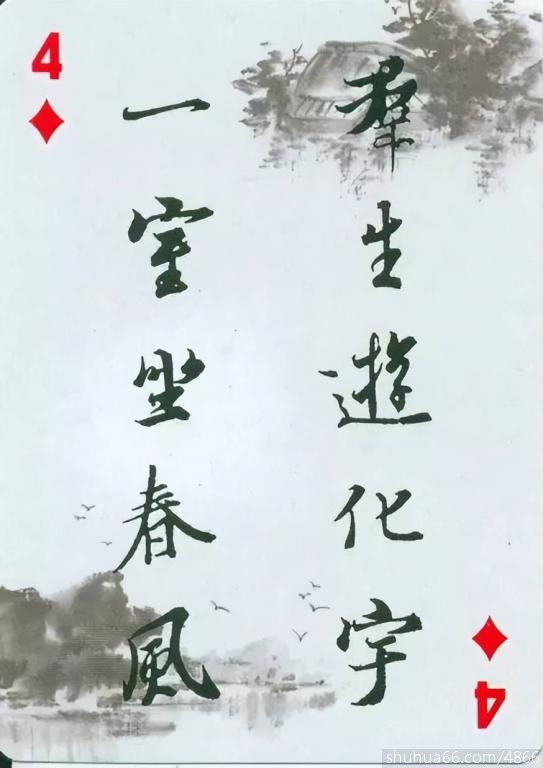 4
羣生遊化宇
一室坐春風
4
shuhua66.com/4866